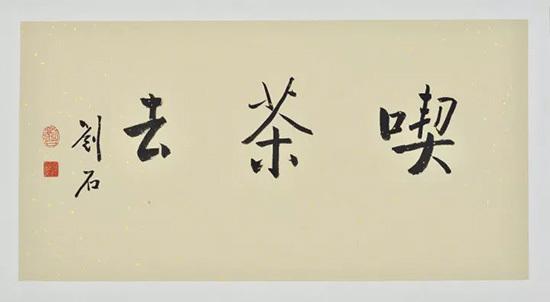 喫茶去
劉石